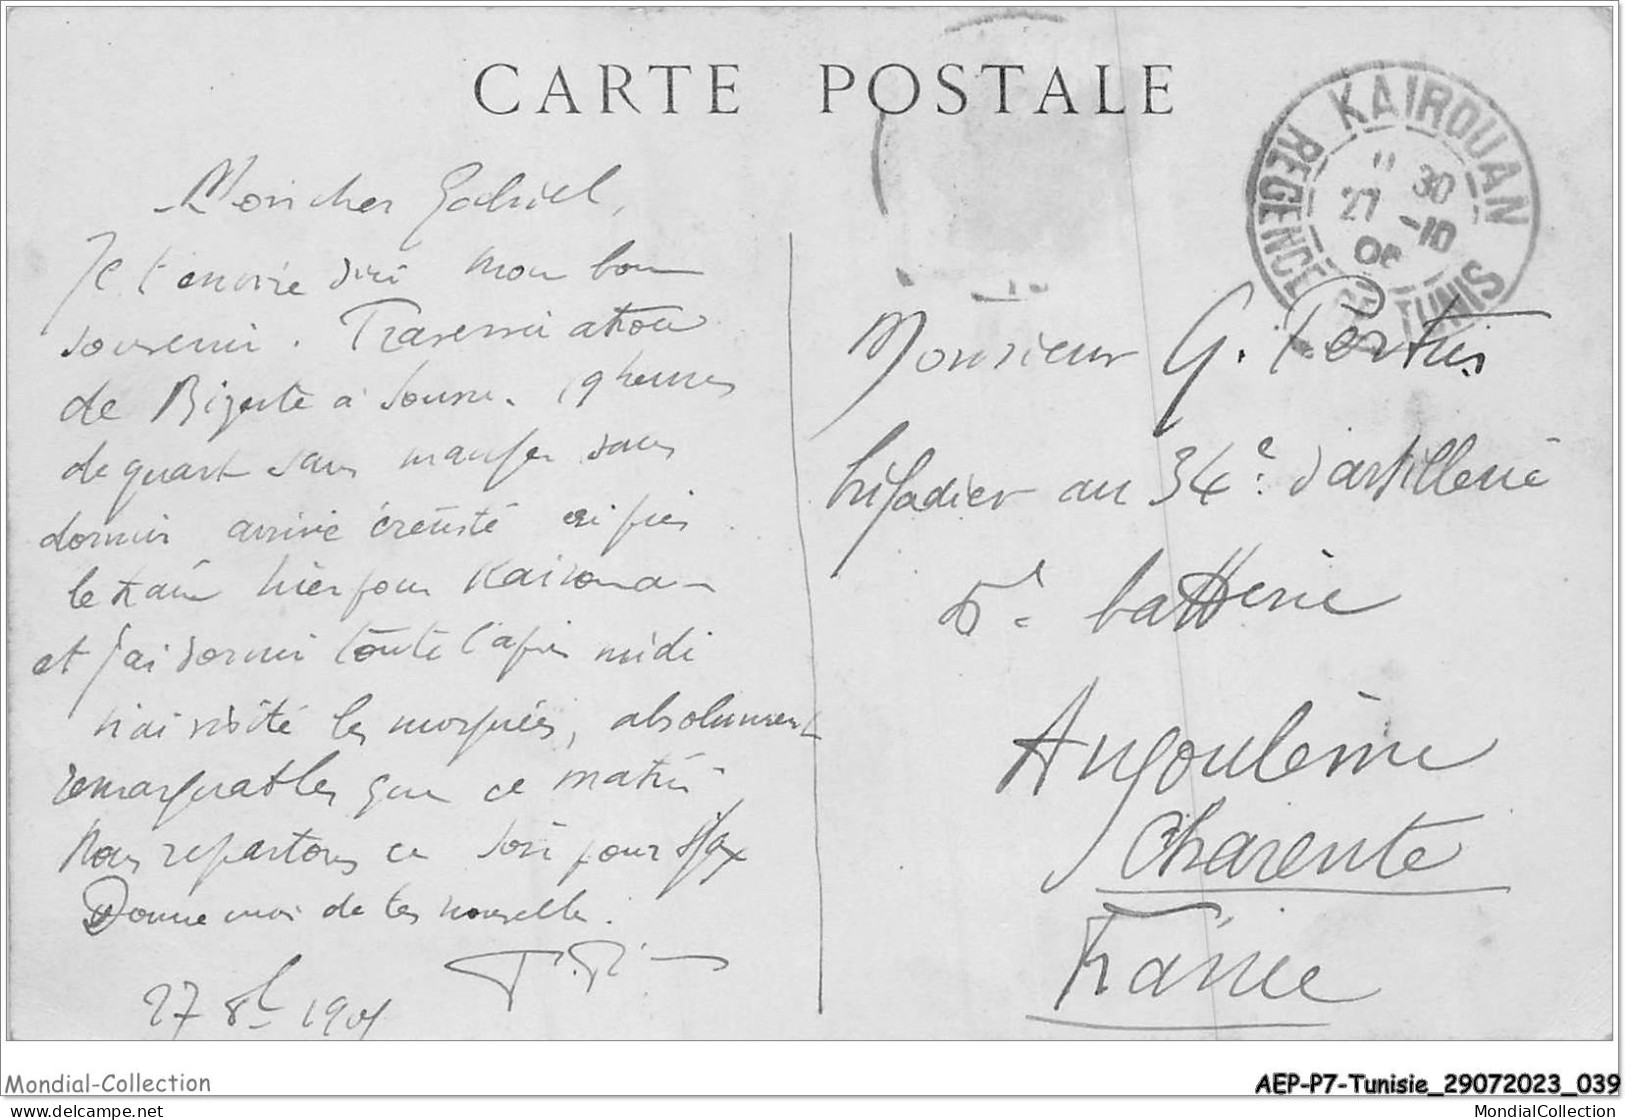 CARTE POSTALE
KAIROUAN
REGENCE DE TUNIS
11 30
27 -10
Mon cher Gabriel,
Je t'envoie d'ici mon bon
souvenir.
de Bizerte à Sousse. 19 heures
de quart sans manger sans
dormir arrivé éreinté ai pris
le train hier pour Kairouan
et j'ai dormi toute l'après midi
n'ai visité les mosquées, absolument
remarquables que ce matin
Nous repartons ce soir pour Sfax
Donne moi de tes nouvelles.
27 8bre
Monsieur G. Pertus
brigadier au 34e d'artillerie
5e batterie
Angoulême
Charente
France
Mondial-Collection
AEP-P7-Tunisie_29072023_039
www.delcampe.net
MondialCollection